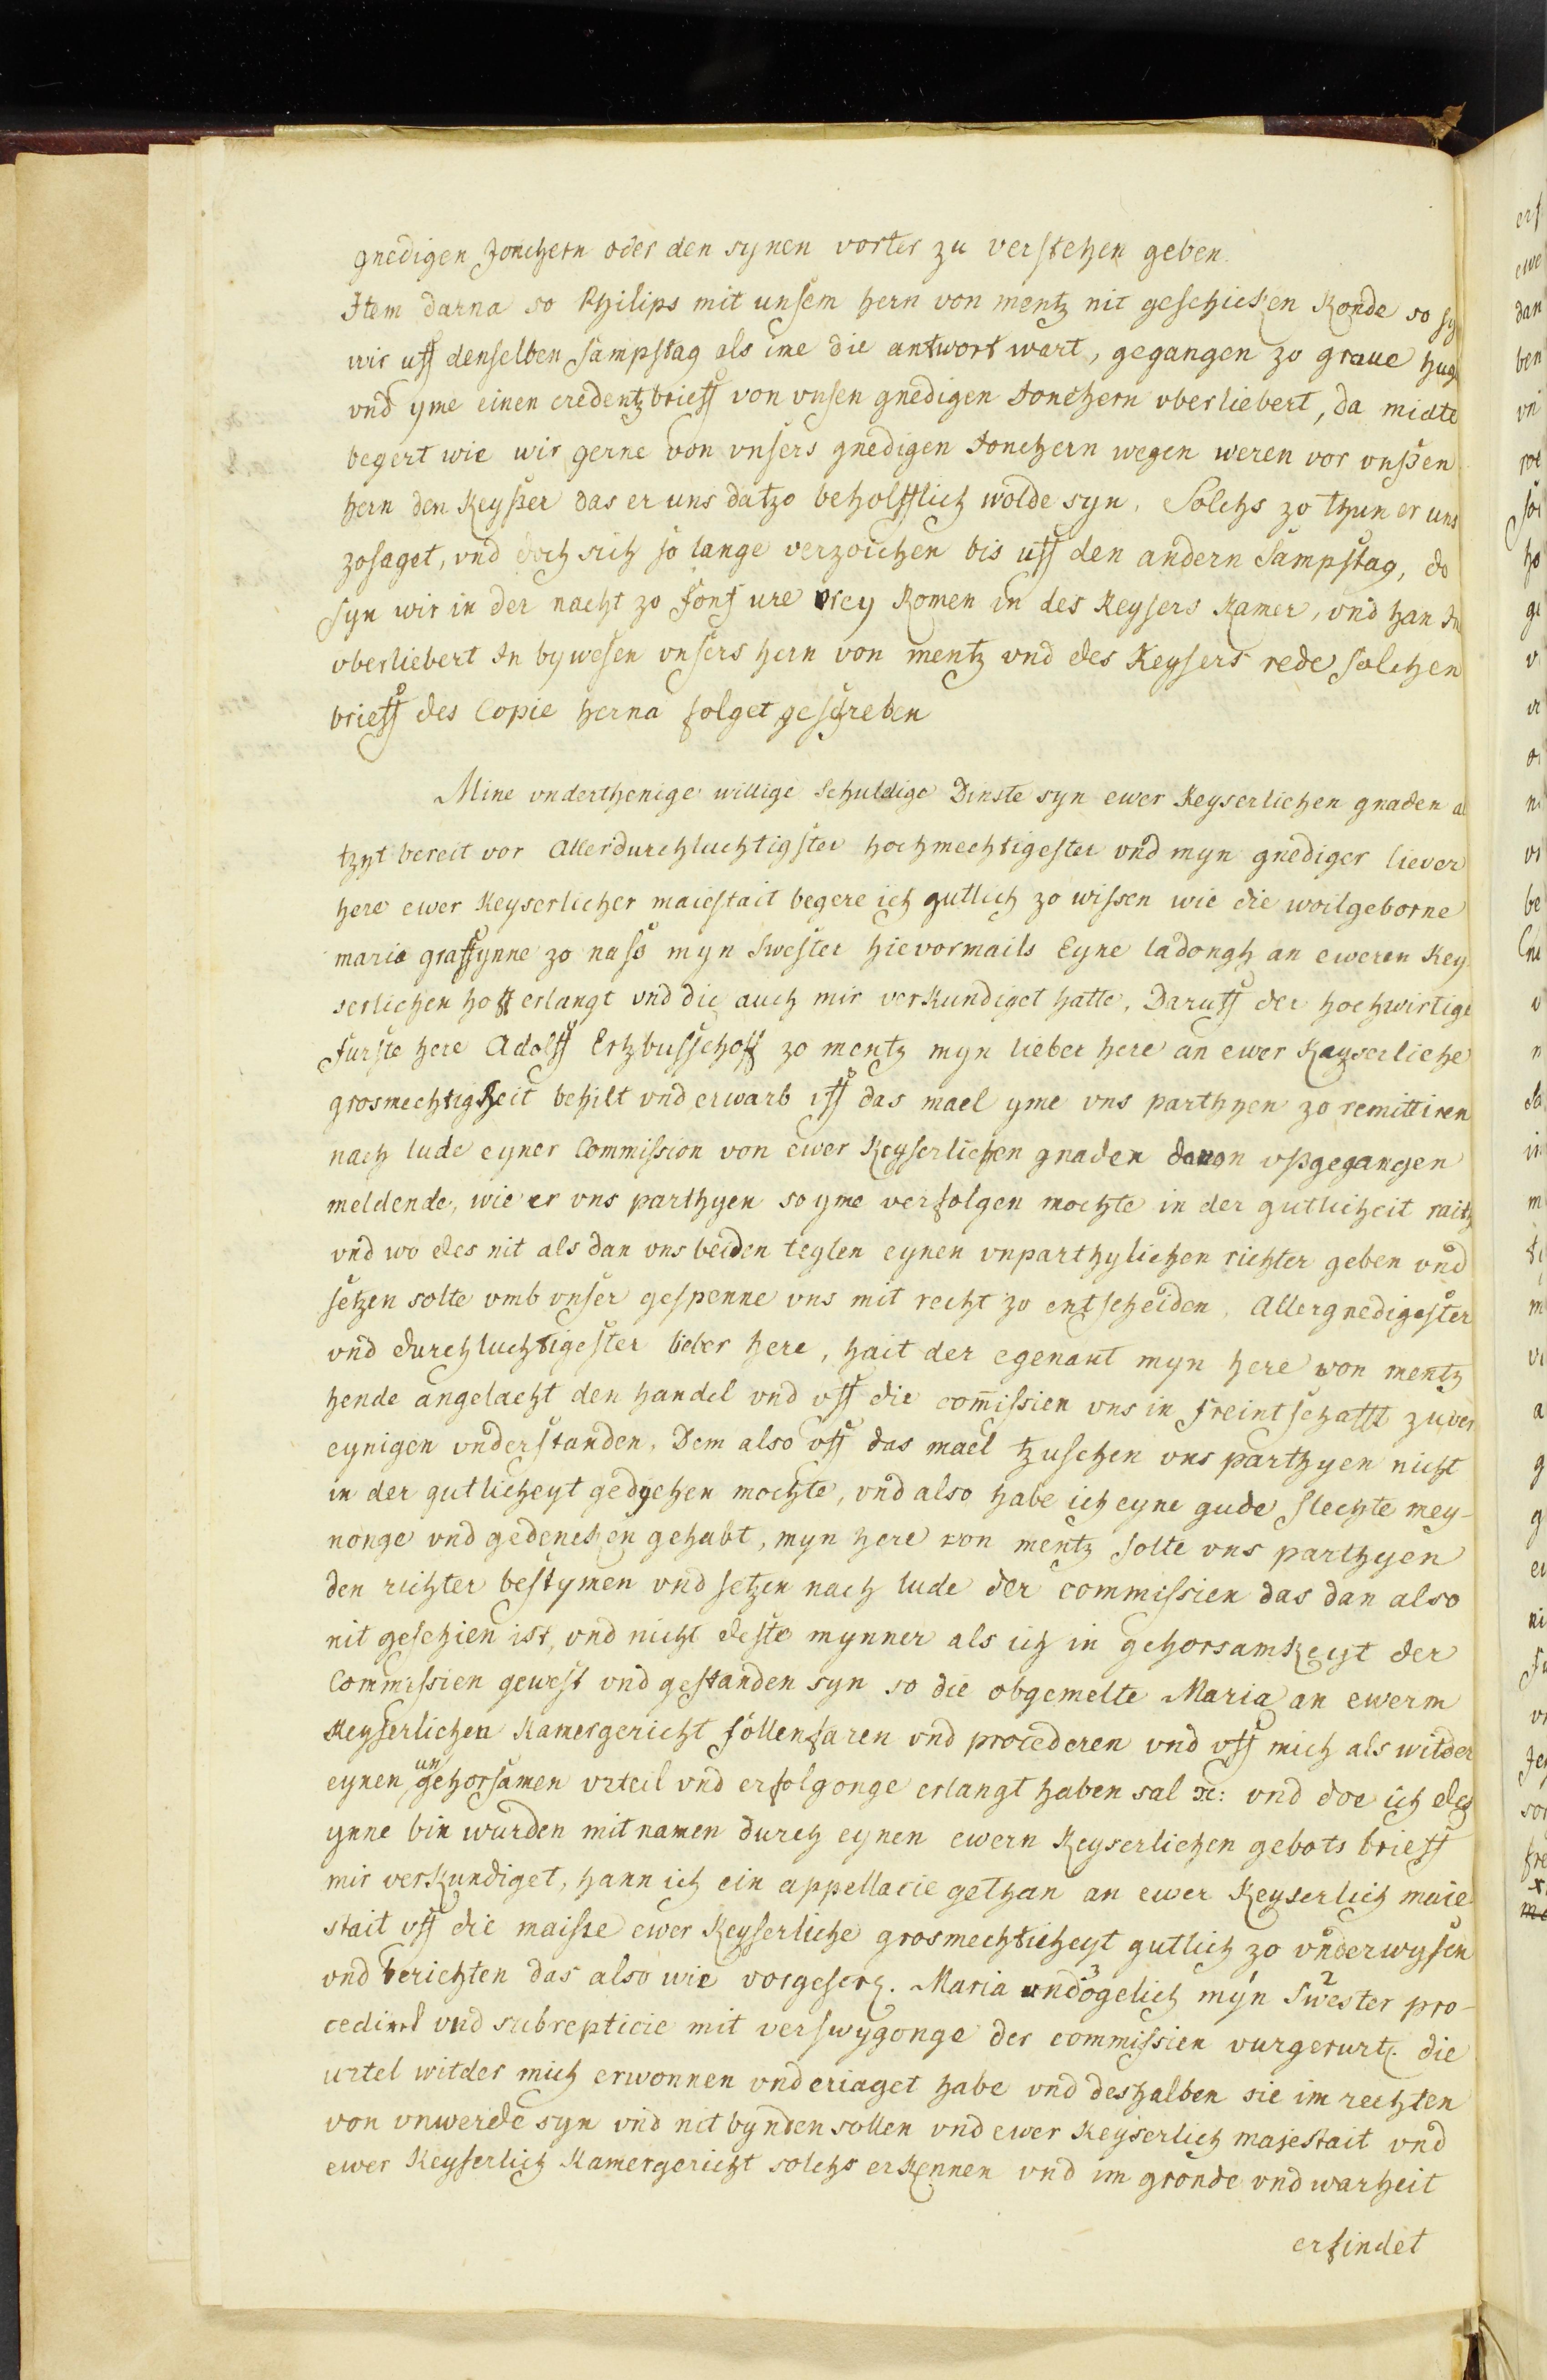 gnedigen Jonchern oder den synen vorter zu verstehen geben.
Item darna so Philips mit unsem hern von mentz nit geschicken konde so sy
wir uff denselben Sampstag als ime die antwort wart, gegangen zo graue hug
vnd yme einen credentzbrieff von vnsen gnedigen Jonchern oberliebert, da midte
begert wie wir gerne von vnsers gnedigen Jonchern wegen weren vor vnßen
hern den Keyßer das er uns datzo beholfflich wolde syn. Solchs zo thun er uns
zosaget, vnd doch sich so lange verzoichen bis uff den andern Sampstag, do
syn wir in der nacht zo fonf ure komen in des Keysers Kamer, vnd han In
oberliebert In bywesen vnsers hern von mentz vnd des Keysers rede solchen
brieff des Copie herna folget geschreben
Mine vnderthenige willige schuldige Dinste syn ewer Keyserlichen gnaden al
tzyt bereit vor Allerdurchluchtigster hochmechtigester vnd myn gnediger liever
here ewer Keyserlicher maiestait begere ich gutlich zo wissen wie die woilgeborne
maria graffynne zo nass myn Swester hievormails Eyne ladongh an eweren Key
serlichen hoff erlangt vnd die auch mir verkundiget hatte, Daruff der hochwirtige
Furste here Adolff Ertzbusschoff zo mentz myn lieber here an ewer Kayserliche
grosmechtigkeit behilt vnd erwarb uff das mael yme vns parthyen zo remittiren
nach lude eyner Commission von ewer Keyserlichen gnaden davon vßgegangen
meldende, wie er vns parthyen so yme verfolgen mochte in der gutlicheit raith
vnd wo des nit als dan vns beiden teylen eynen vnparthylichen richter geben vnd
setzen solte vmb vnser gespenne vns mit recht zo entscheiden. Allergnedigester
vnd durchluchtigester lieber here, hait der egenant myn here von mentz
hende angelacht den handel vnd vff die comissien vns in freintschafft zuver
eynigen vnderstanden, Dem also vff das mael tzuschen vns parthyen nicht
in der gutlicheyt gedychen mochte, vnd also habe ich eyne gude slechte mey-
nonge vnd gedencken gehabt, myn here von mentz solte vns parthyen
den richter bestymen vnd setzen nach lude der commissien das dan also
nit geschien ist, vnd nicht deste mynner als ich in gehorsamkeyt der
Commissien gewest vnd gestanden syn so die obgemelte Maria an ewerm
Keyserlichen Kamergericht follenfaren vnd procederen vnd vff mich als witder
eynen ungehorsamen vrteil vnd erfolgonge erlangt haben sal ꝛc: vnd doe ich des
ynne bin wurden mitnamen durch eynen ewern Keyserlichen gebots brieff
mir verkundiget, hann ich ein appellacie gethan an ewer Keyserlich maie
stait vff die maisse ewer Keyserliche grosmechticheyt gutlich zo vnderwysen
vnd berichten das also wie vorgescr. Maria undogelich 3 myn 1 Swester 2 pro-
cediret vnd subrepticie mit verswygonge der commissien vurgerurt. die
urtel witder mich erwonnen vnd eriaget habe vnd deshalben sie im rechten
von vnwerde syn vnd nit bynden sollen vnd ewer Keyserlich majestait vnd
ewer Keyserlich Kamergericht solchs erkennen vnd im gronde vnd warheit
erfindet